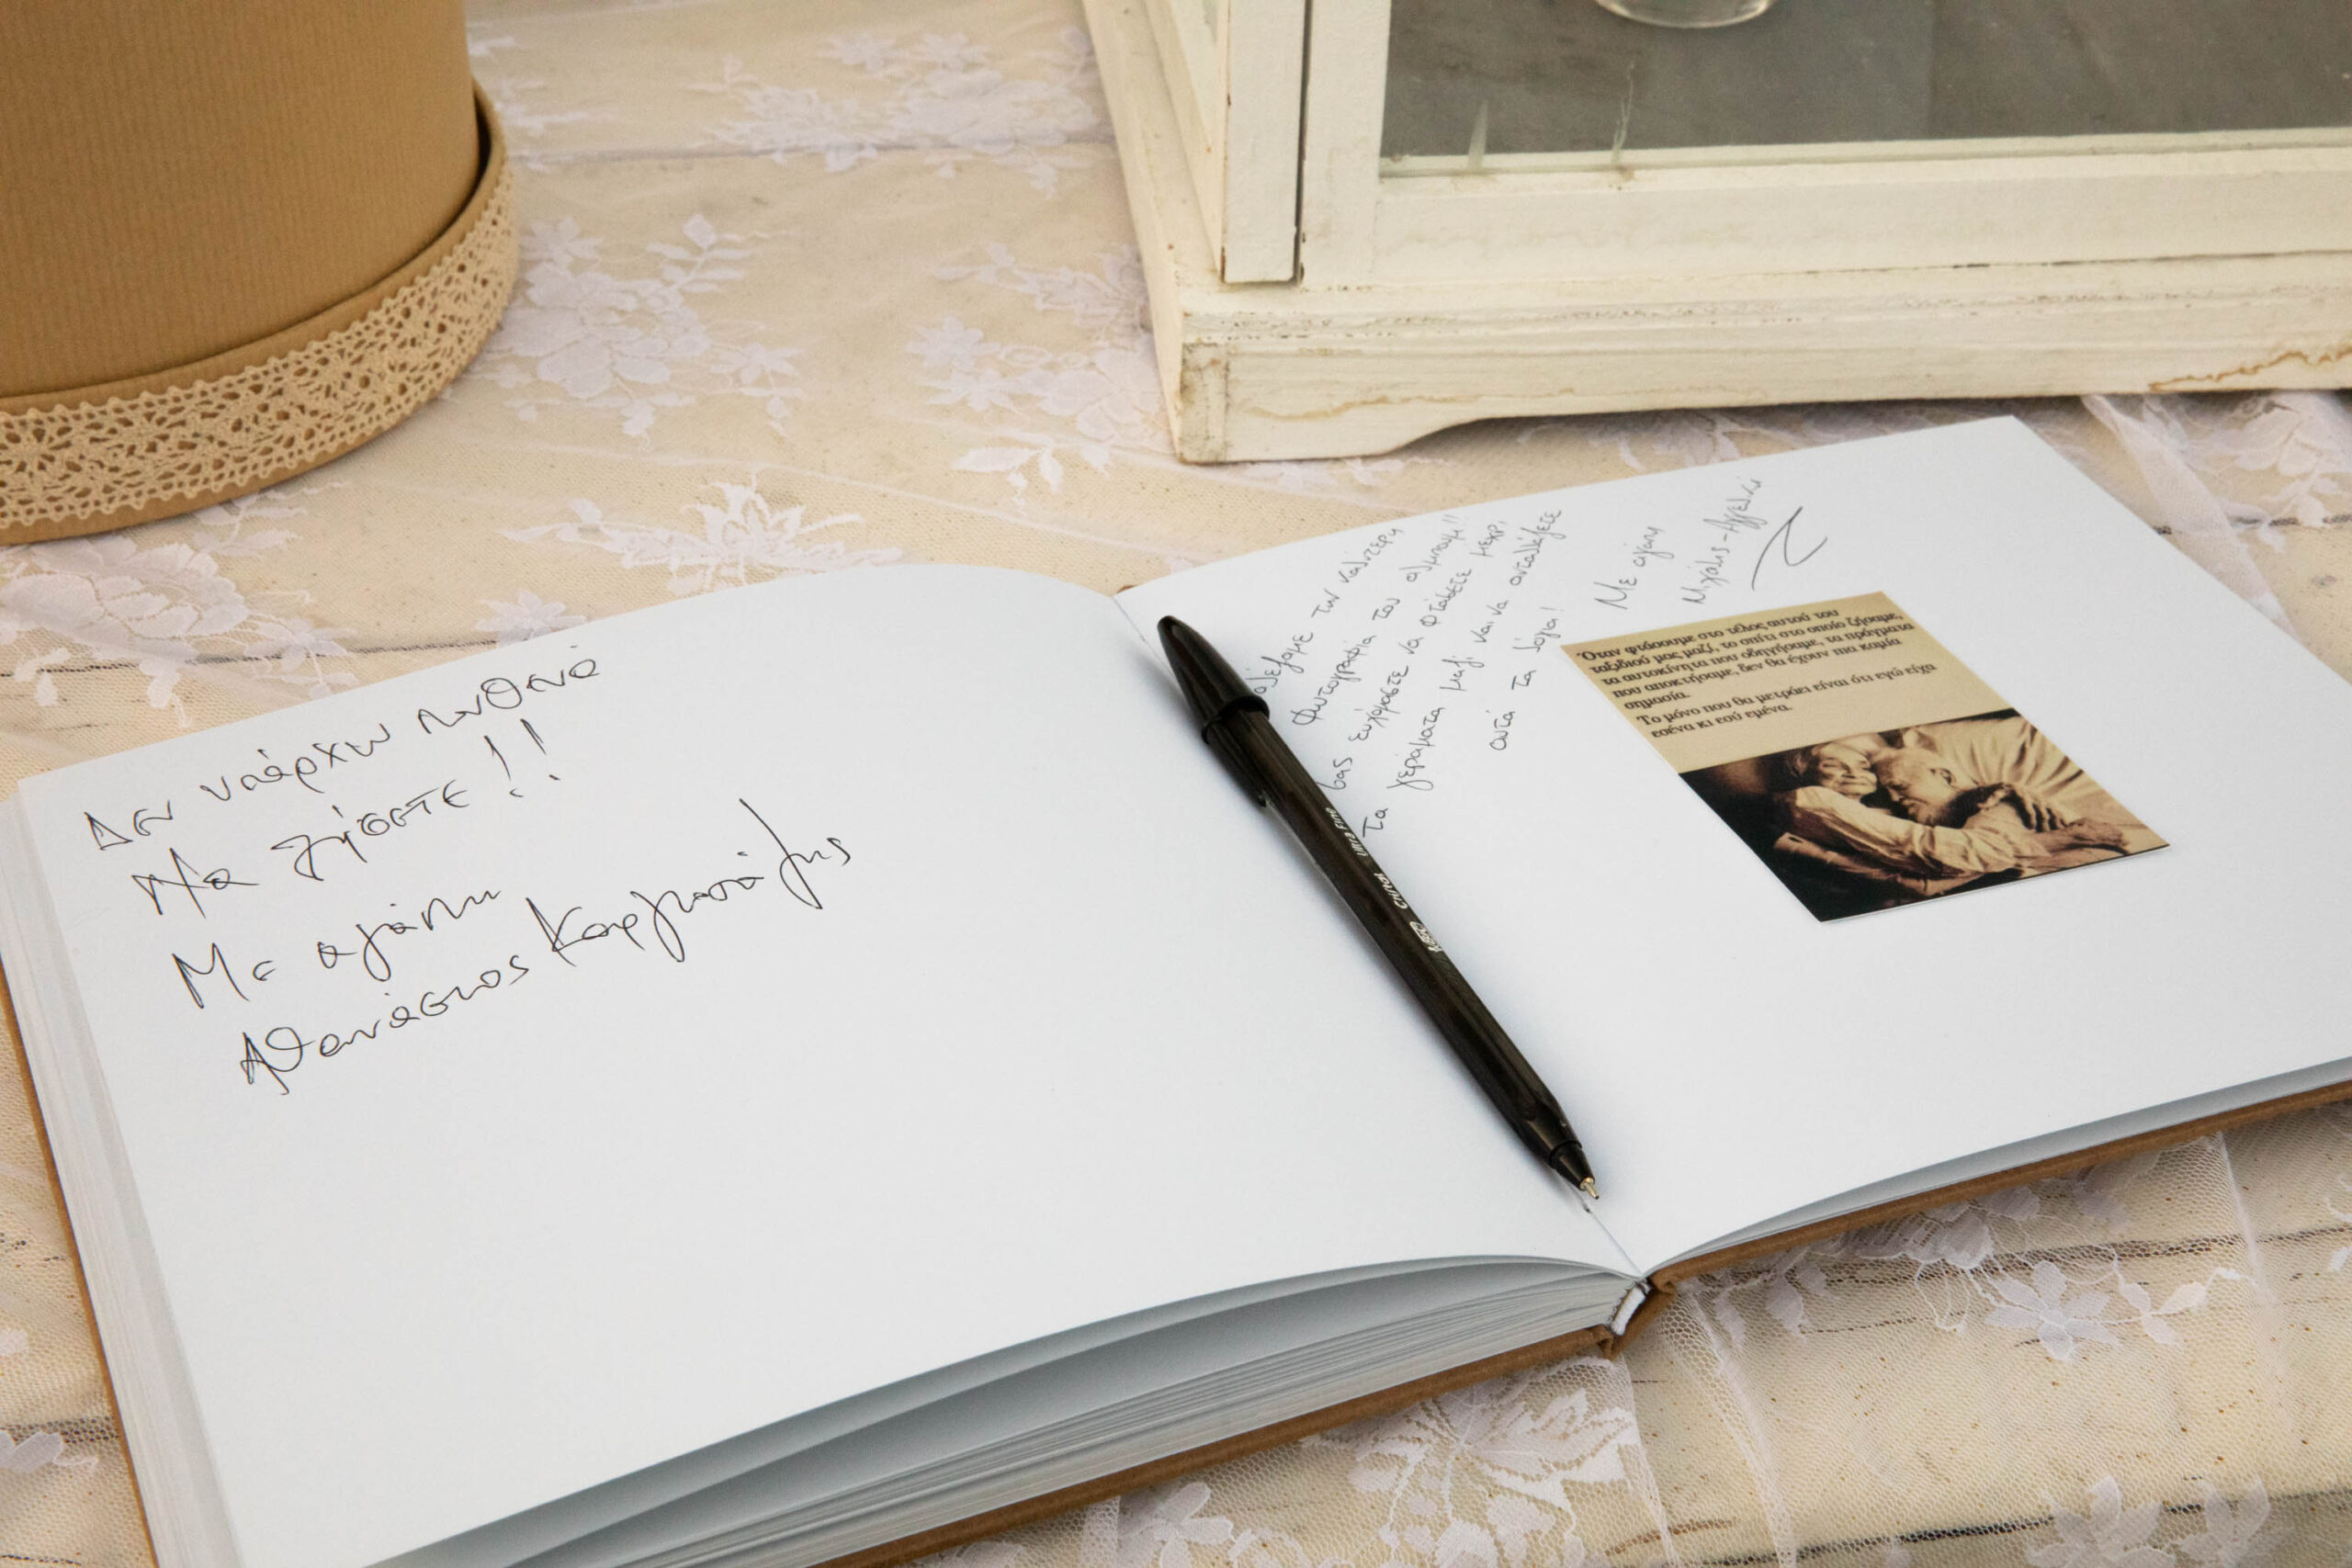 Δεν υπάρχω πουθενά
Να ζήσετε!!
Με αγάπη
Αθανάσιος
την καλύτερη
Φωτογραφία του αλμπουμ!!
σας ευχόμαστε να φτάσετε μεχρι
Τα γεράματα μαζί και να ανταλλάξετε
αυτά τα λόγια!
Με αγάπη
Μιχάλης-Αγγελική
Όταν φτάσουμε στο τέλος αυτού του
ταξιδιού μας μαζί, το σπίτι στο οποίο ζήσαμε,
τα αυτοκίνητα που οδηγήσαμε, τα πράγματα
που αποκτήσαμε, δεν θα έχουν πια καμία
σημασία.
Το μόνο που θα μετράει είναι ότι εγώ είχα
εσένα κι εσύ εμένα.
Cristal Ultra Fine